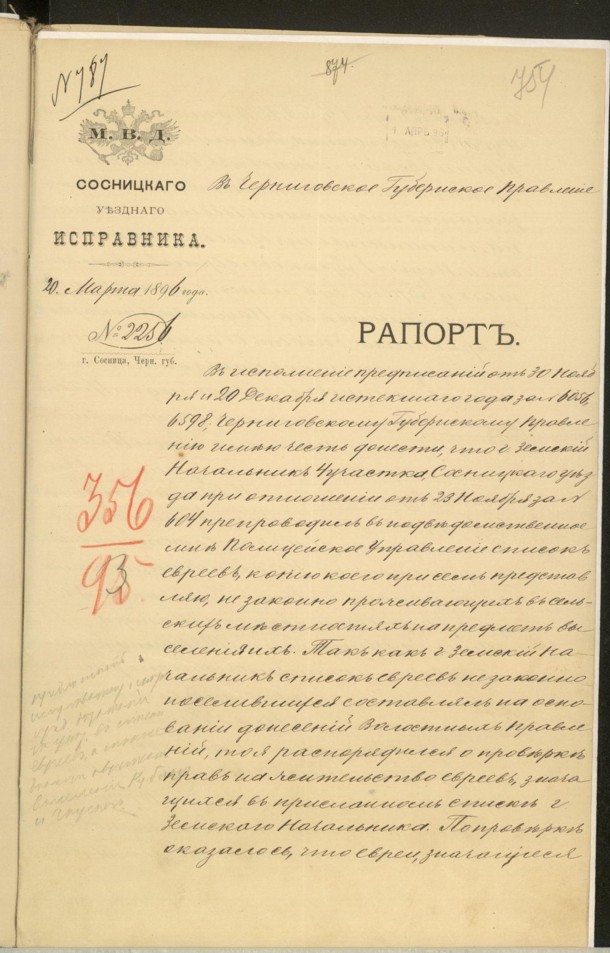 N 787
874.
754
М. В. Д.
СОСНИЦКАГО
УѢЗДНАГО
ИСПРАВНИКА.
20 Марта 1896 года.
№ 2256
г. Сосница, Черн. губ.
АПРѢ
Въ Черниговское Губернское Правленіе
РАПОРТЪ.
Въ исполненіе предписаній отъ 30 Нояб
ря и 20 Декабря истекшаго года за N 6056,
6598, Черниговскому Губернскому Правле
нію имѣю честь донести, что г. Земскій
Начальникъ 4 участка, Сосницкаго уѣз
да при отношеніи отъ 23 Ноября за N
604 препроводилъ въ подвѣдомственное
мнѣ Полицейское Управленіе списокъ
евреевъ, копію коего при семъ представ
ляю, не законно проживающихъ въ сель-
скихъ мѣстностяхъ на предметъ вы
селенія ихъ. Такъ какъ г. Земскій На-
чальникъ списокъ евреевъ не законно
поселившихся составлялъ на осно
ваніи донесеній Волостныхъ Правле
ній, то я распорядился о провѣркѣ
правъ на жительство евреевъ, знача
щихся въ присланномъ спискѣ г.
Земскаго Начальника. По провѣркѣ
оказалось, что евреи, значащіеся
356
93